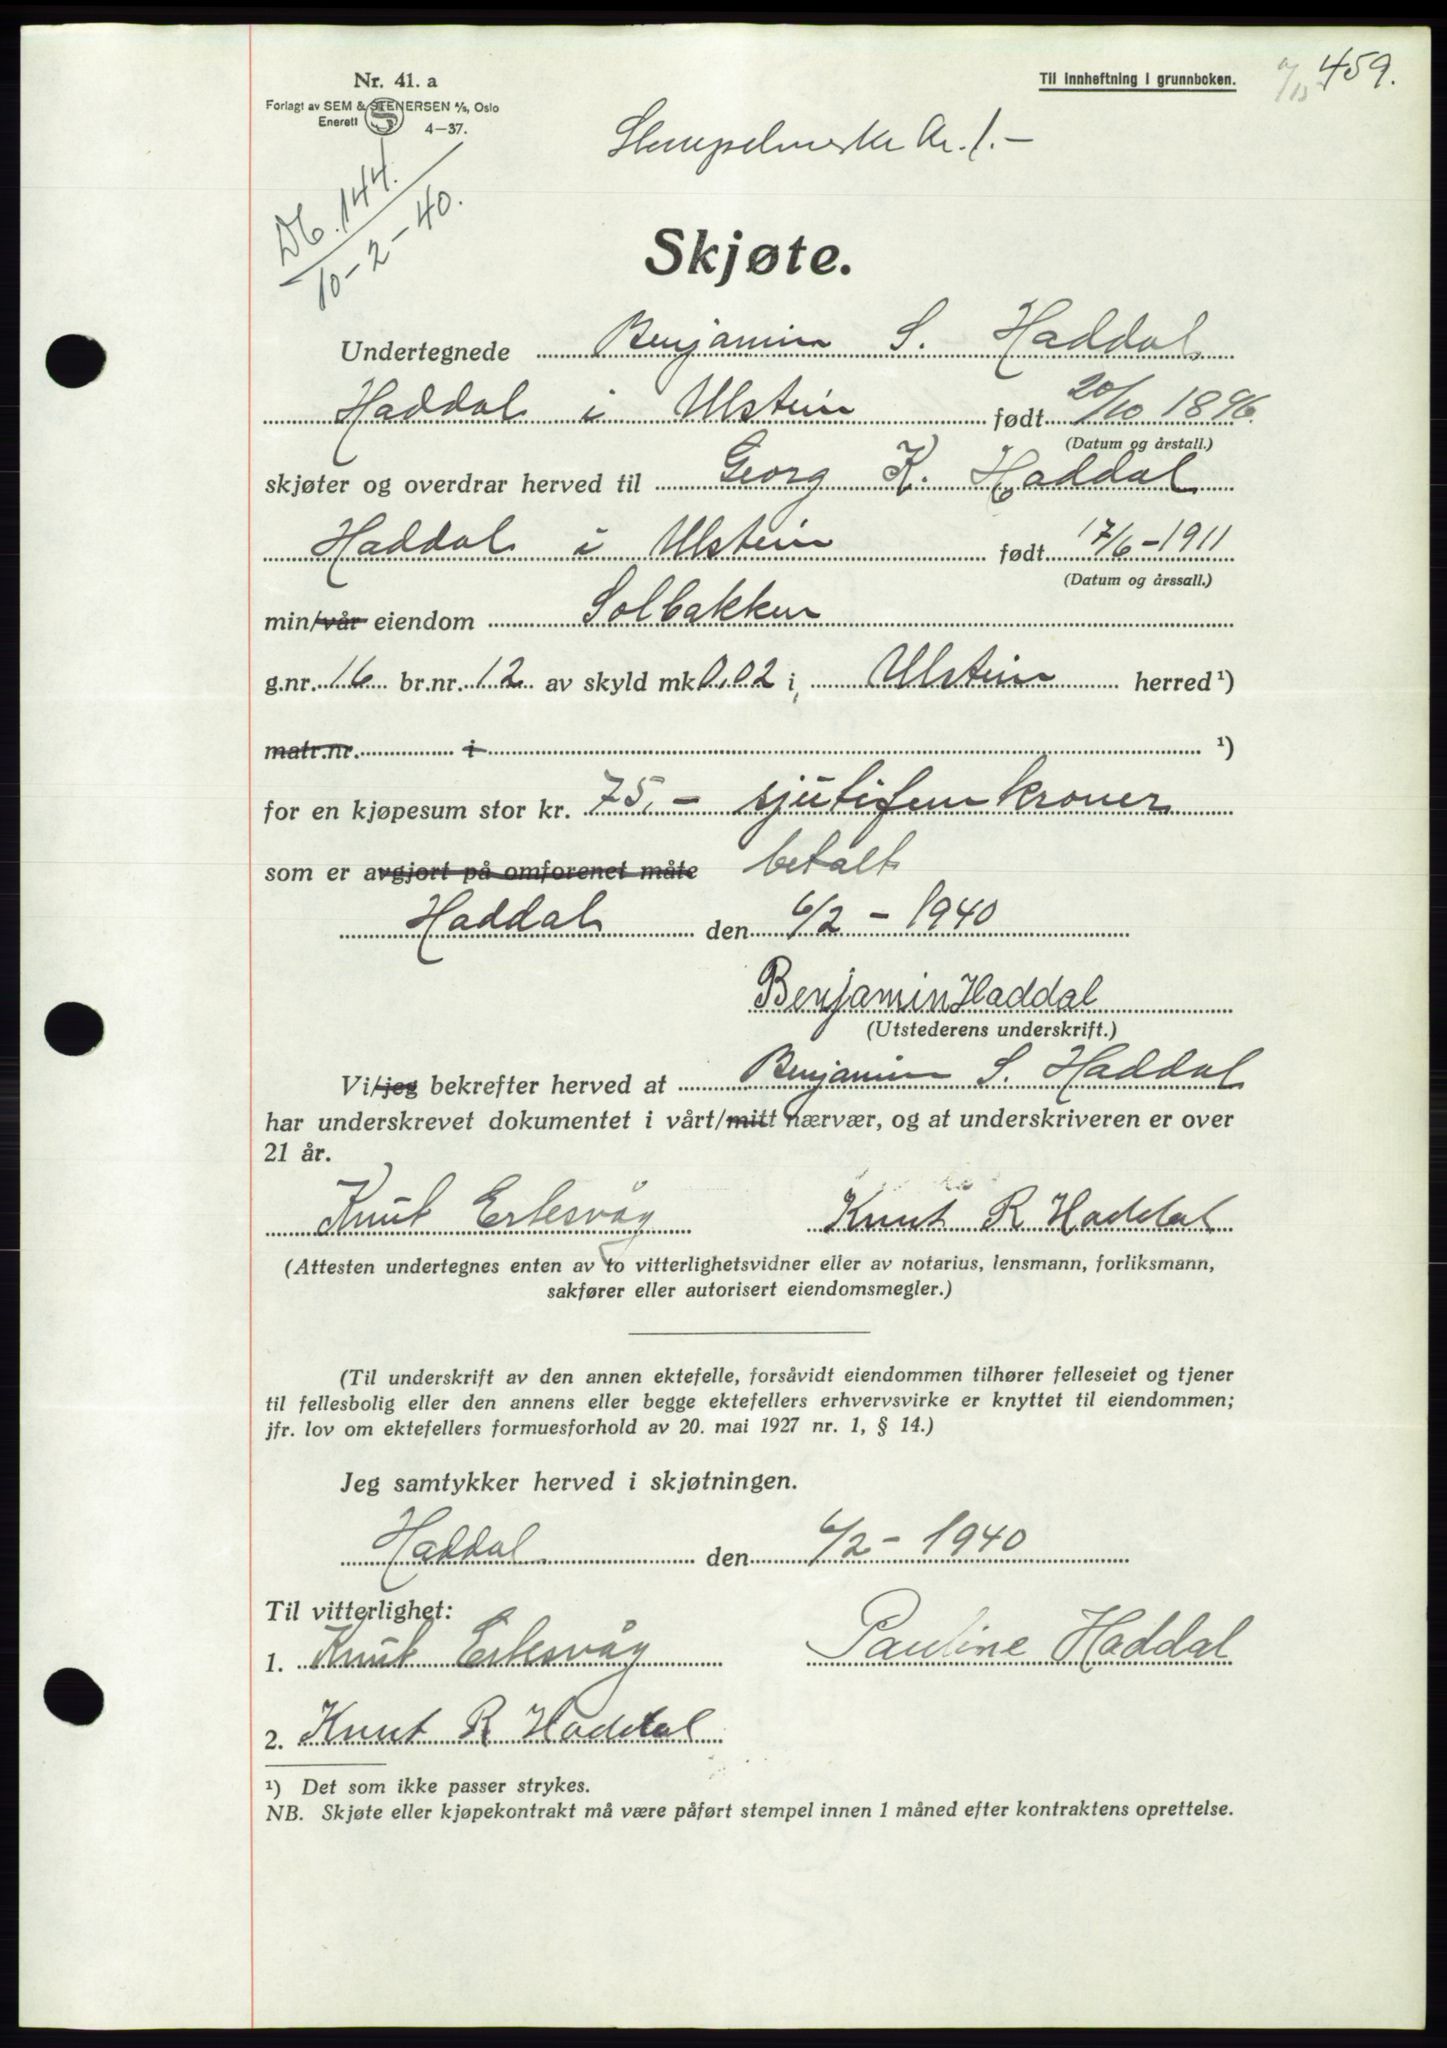 Nr. 41. a
Forlagt av SEM & STENERSEN A/S, Oslo
Enerett
4-37.
Til innheftning i grunnboken.
459.
Stempelmerke kr. 1.-
Db. 144.
10-2-40.
Skjøte.
Undertegnede Benjamin S. Haddal
Haddal i Ulstein født 20/10 1896.
(Datum og årstall.)
skjøter og overdrar herved til Georg K. Haddal
Haddal i Ulstein født 17/6-1911
(Datum og årssall.)
min/vår eiendom Solbakken
g.nr. 16 br.nr. 12 av skyld mk 0,02 i Ulstein herred ¹)
matr.nr. i ¹)
for en kjøpesum stor kr. 75,- sjutifem kroner
som er avgjort på omforenet måte betalt
Haddal den 6/2 - 1940
Benjamin Haddal
(Utstederens underskrift.)
Vi/jeg bekrefter herved at Benjamin S. Haddal
har underskrevet dokumentet i vårt/mitt nærvær, og at underskriveren er over
21 år.
Knut Ertesvåg Knut R Haddal
(Attesten undertegnes enten av to vitterlighetsvidner eller av notarius, lensmann, forliksmann,
sakfører eller autorisert eiendomsmegler.)
(Til underskrift av den annen ektefelle, forsåvidt eiendommen tilhører felleseiet og tjener
til fellesbolig eller den annens eller begge ektefellers erhvervsvirke er knyttet til eiendommen;
jfr. lov om ektefellers formuesforhold av 20. mai 1927 nr. 1, § 14.)
Jeg samtykker herved i skjøtningen.
Haddal den 6/2 - 1940
Til vitterlighet:
1. Knut Ertesvåg Pauline Haddal
2. Knut R Haddal
¹) Det som ikke passer strykes.
NB. Skjøte eller kjøpekontrakt må være påført stempel innen 1 måned efter kontraktens oprettelse.